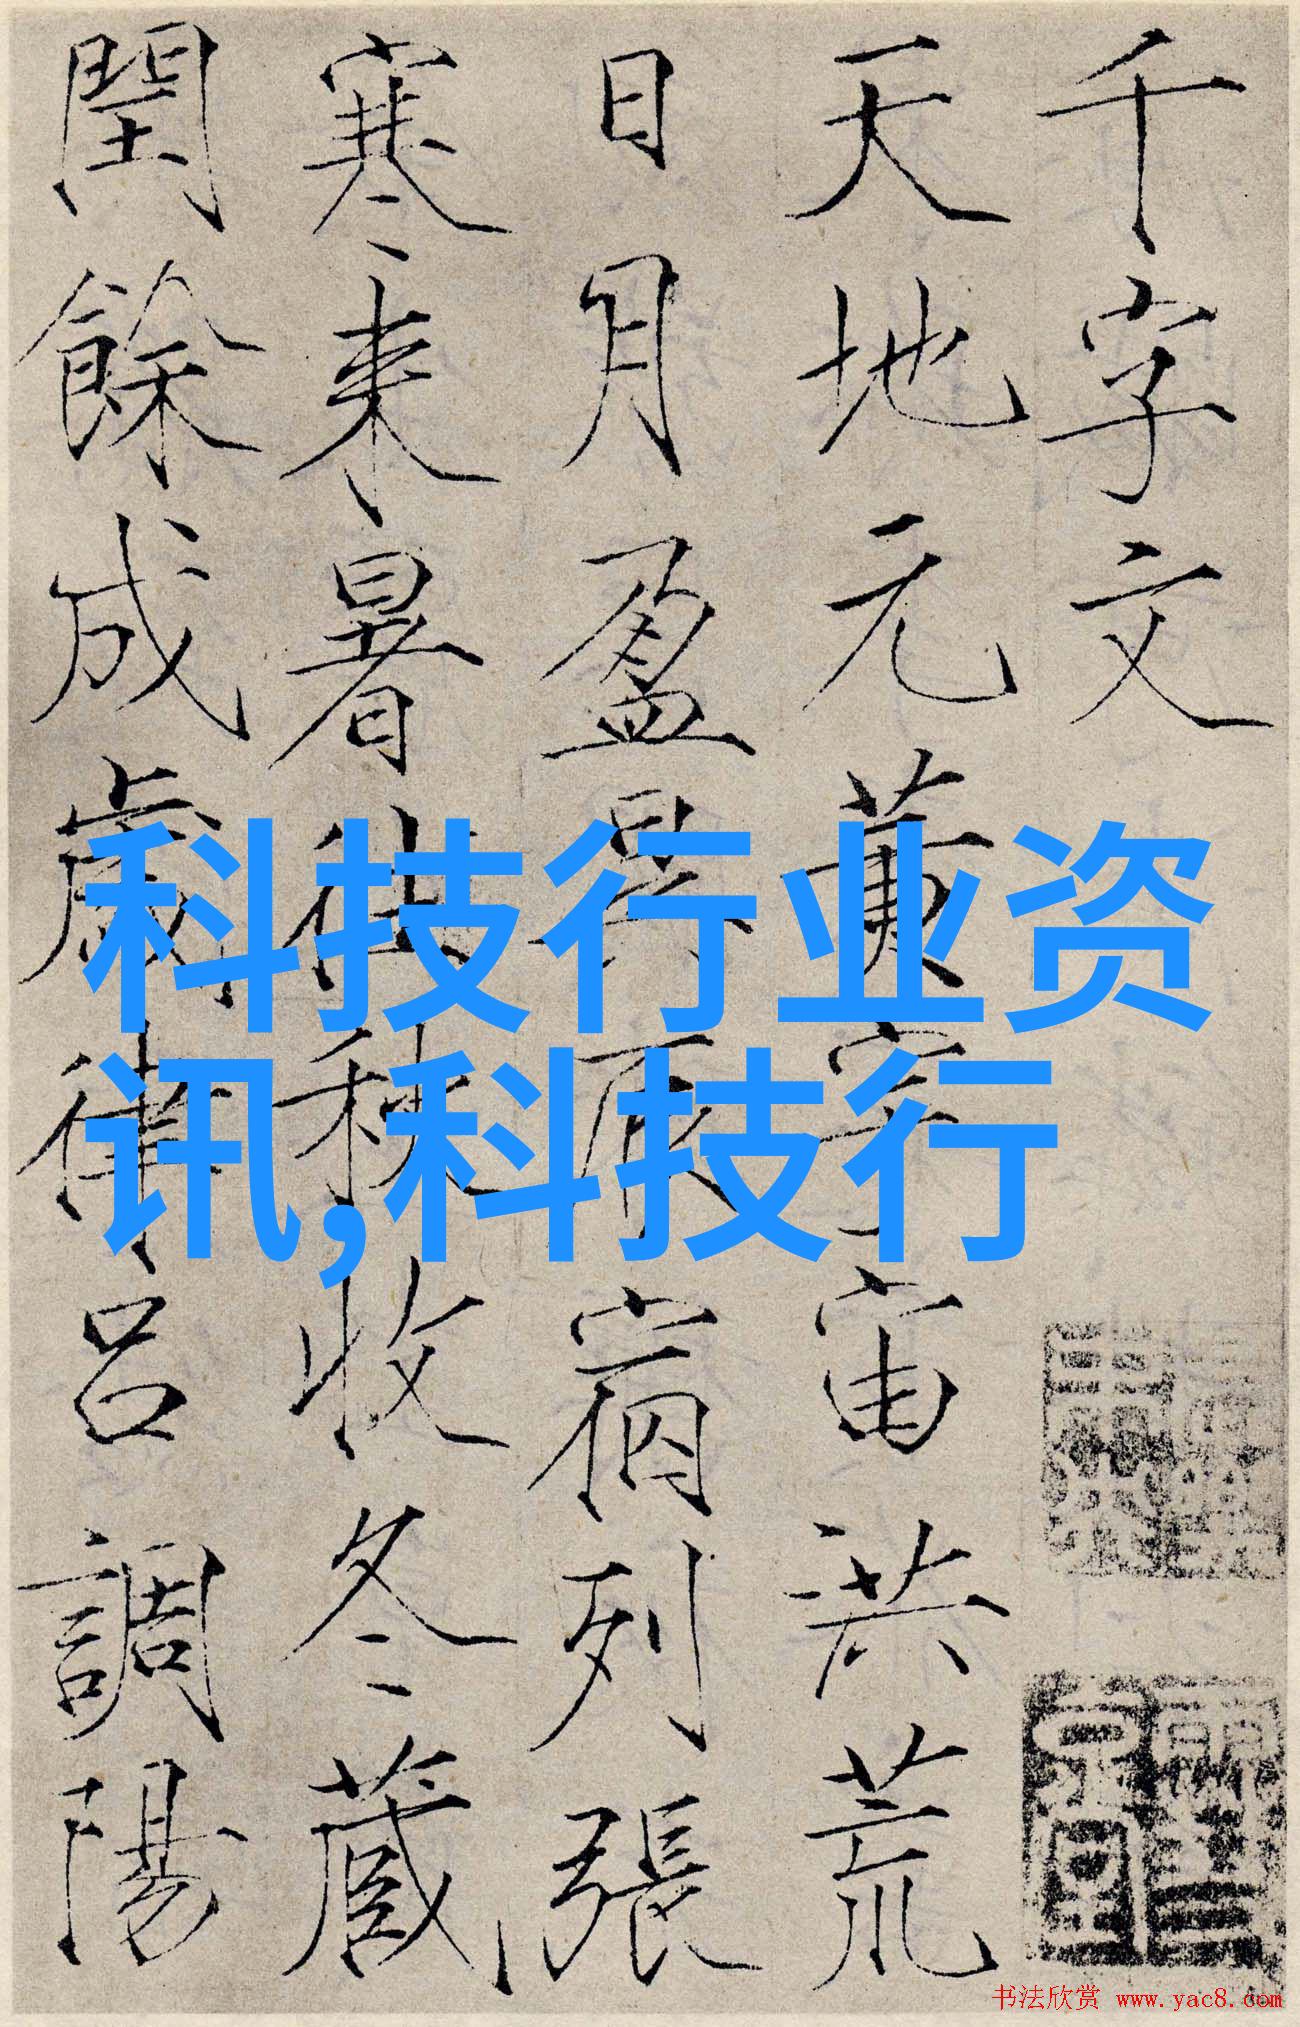 千字文
天地元黄宇宙洪荒
日月盈昃辰宿列張
寒来暑往秋收冬藏
閏餘成歲律吕調陽
科技行业资
讯,科技行
书法欣赏 www.yac8.com